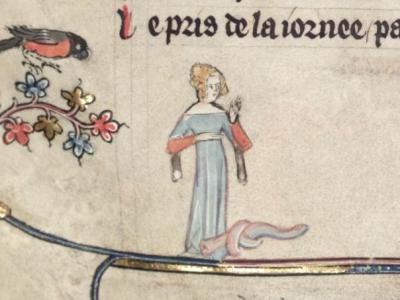 le pris de la iornee, pa